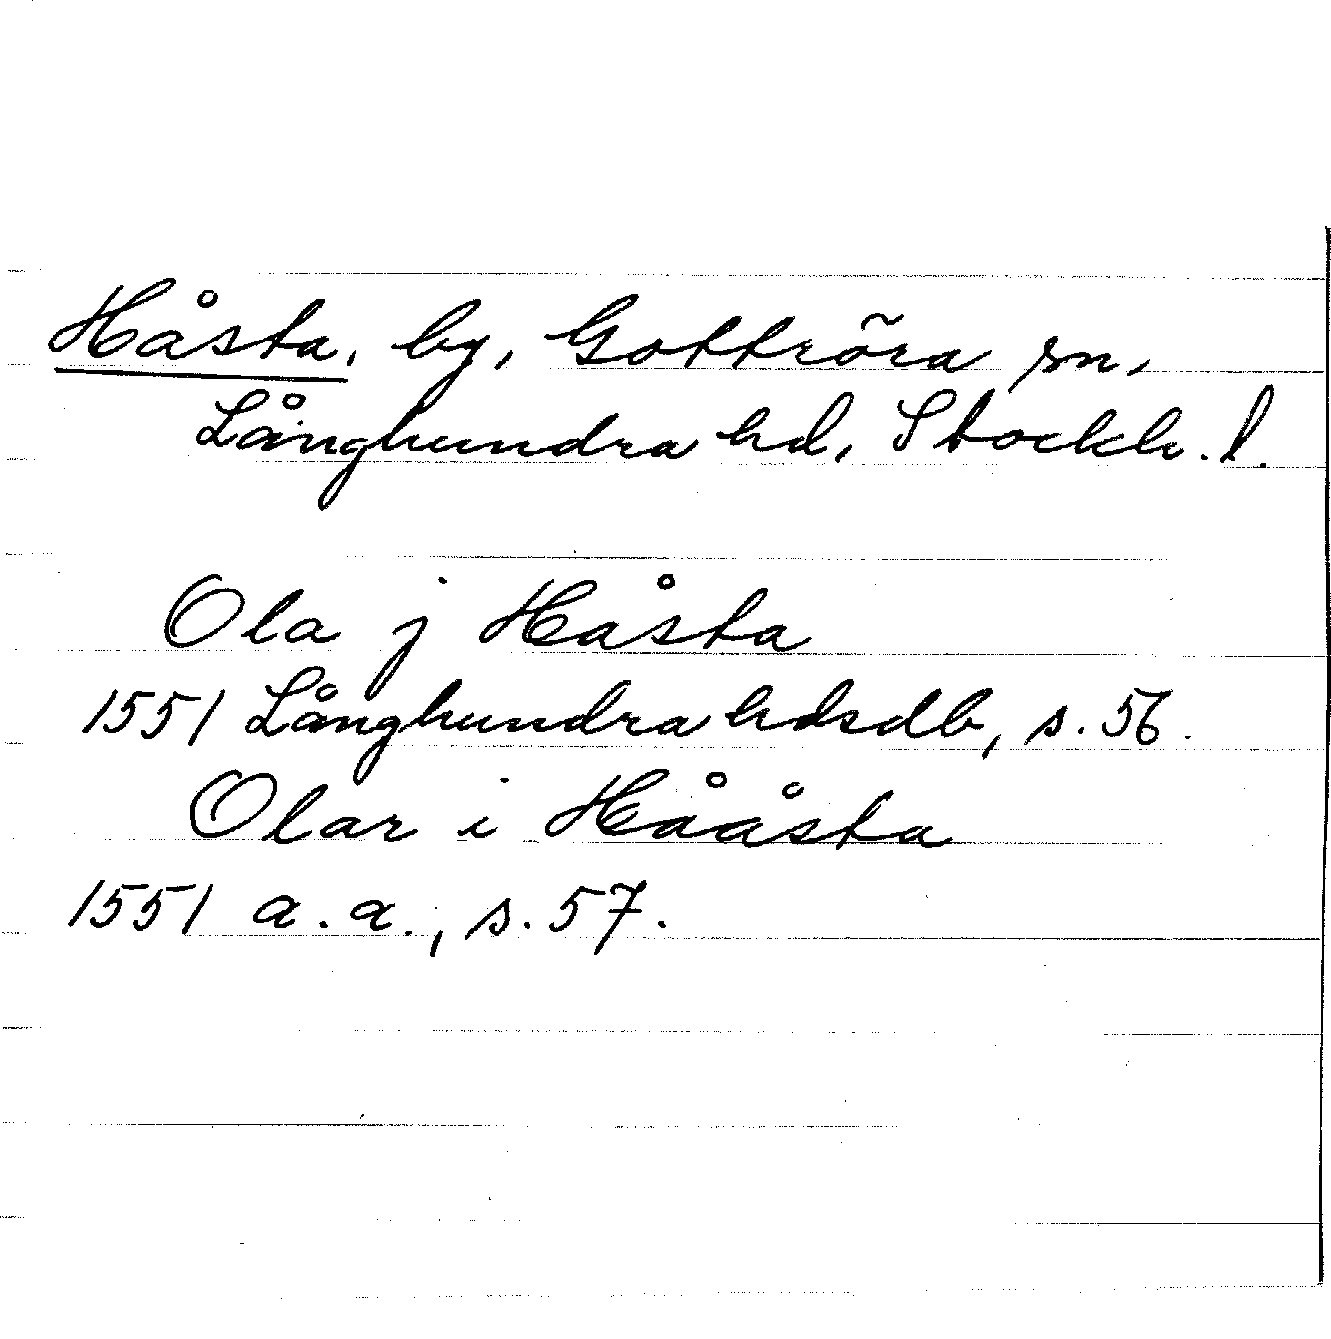 Håsta, by, Gottröra sn,
Långhundra hd, Stockh. l.
Ola j Håsta
1551 Långhundra hdsdb, s. 56.
Olar i Hååsta
1551 a.a., s. 57.